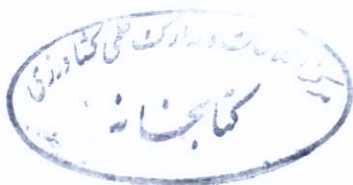 مرکز اطلاعات و مدارک علمی کشاورزی
کتابخانه